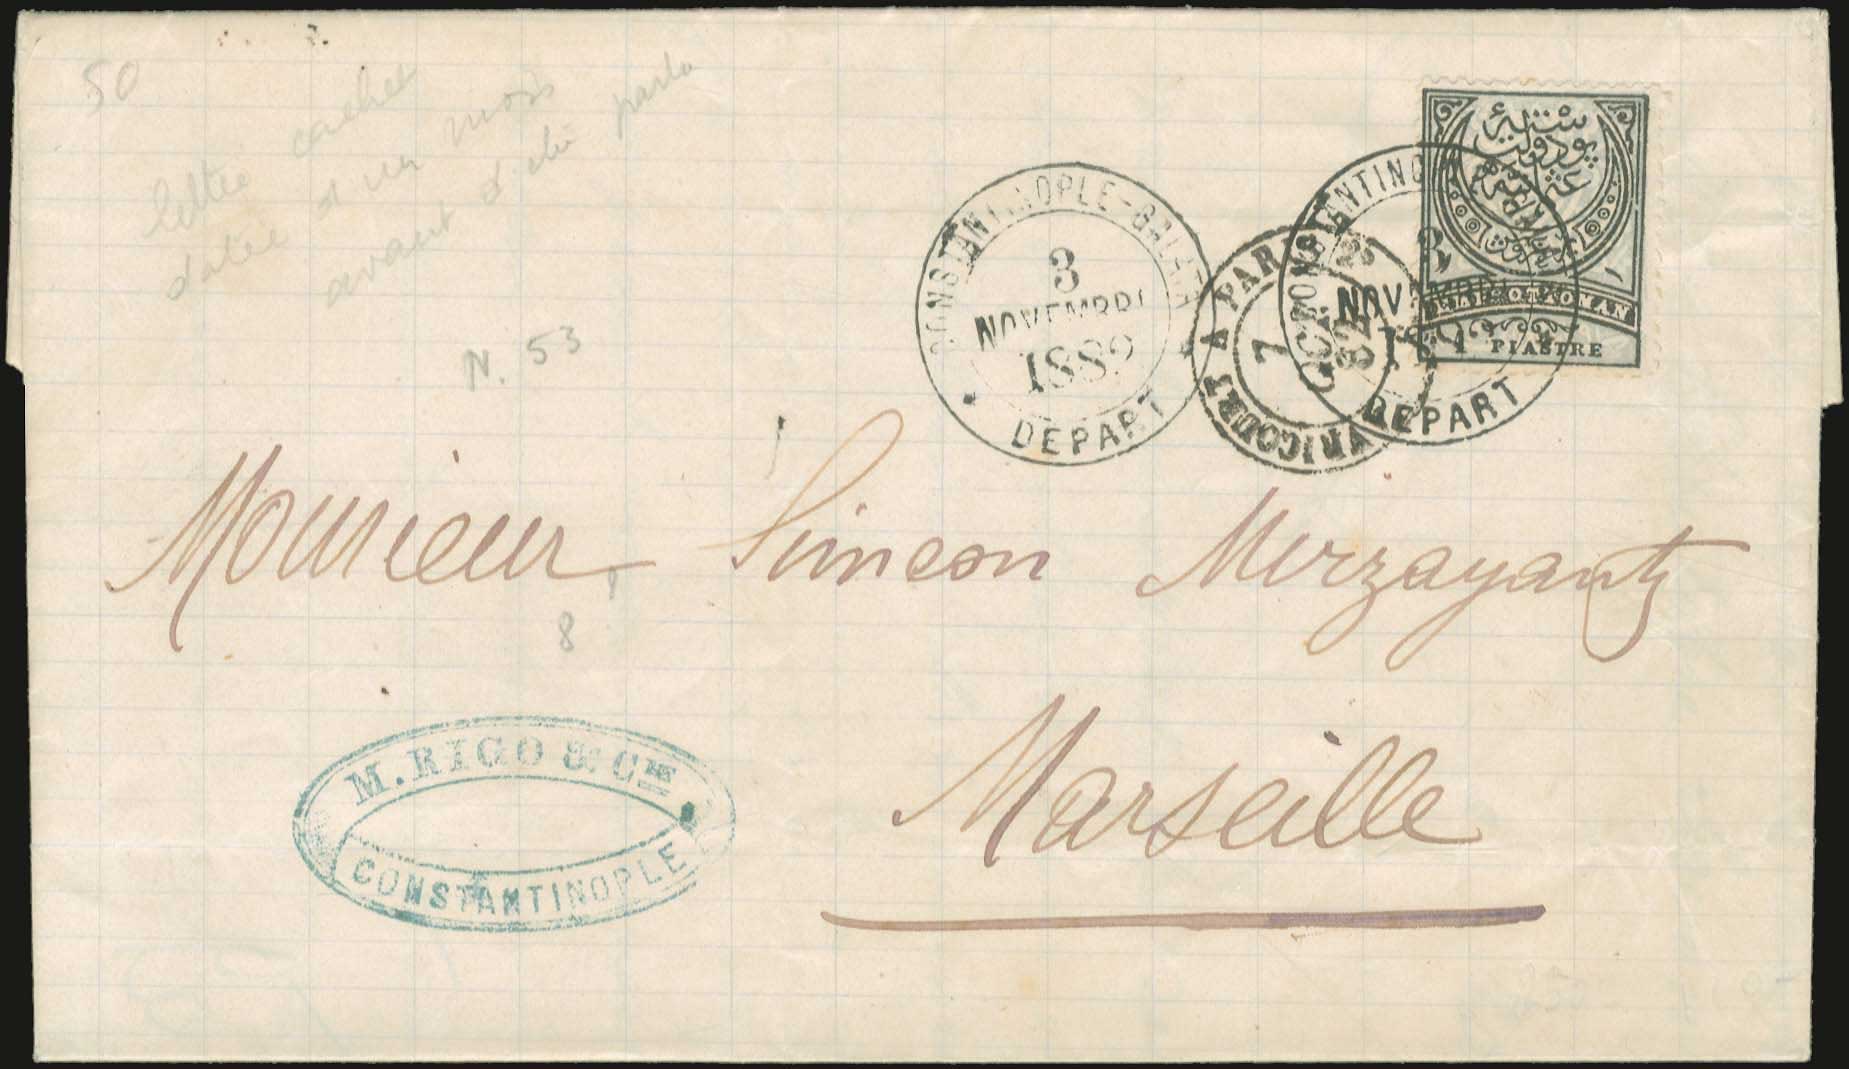 50
lettre cachet
datée d'un mois
avant d'être parti
N. 53
CONSTANTINOPLE-GALATA
3
NOVEMBRE
1882
DEPART
AVRICOURT A PARIS
7
OCT
82
CONSTANTINOPLE
3
NOVEMBRE
1882
DEPART
EMP. OTTOMAN
1 PIASTRE
Monsieur Simeon Mirzayantz
8
Marseille
M. RIGO & CIE
CONSTANTINOPLE